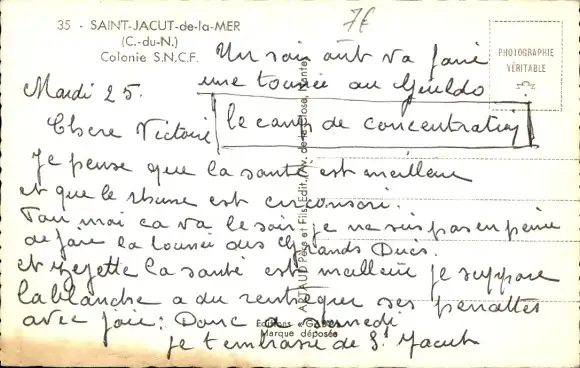 35 - SAINT-JACUT-de-la-MER
(C.-du-N.)
Colonie S.N.C.F.
7€
PHOTOGRAPHIE
VÉRITABLE
Un soir on va faire
une tournée au Guildo
Mardi 25.
le camp de concentration
Chere Victoire
Je pense que la santé est meilleure
et que le rhume est
moi ca va le soir je ne suis pas en peine
de faire la tournée des Grands Ducs.
et Zezette la santé est meilleure je suppose
la blanche a du ses penattes
avec joie: Donc a samedi
je t'embrasse de St Jacut
ARTAUD Père et Fils, Edit., Av. de la Close, Nantes
Editions « GABY »
Marque déposée